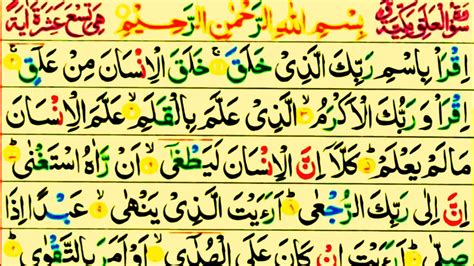 سورة العلق مكية بسم الله الرحمن الرحيم هي تسع عشرة اية
اِقْرَاْ بِاسْمِ رَبِّكَ الَّذِیْ خَلَقَ ۱ خَلَقَ الْاِنْسَانَ مِنْ عَلَقٍ ۲
اِقْرَاْ وَ رَبُّكَ الْاَكْرَمُ ۳ الَّذِیْ عَلَّمَ بِالْقَلَمِ ۴ عَلَّمَ الْاِنْسَانَ
مَا لَمْ یَعْلَمْ ۵ كَلَّاۤ اِنَّ الْاِنْسَانَ لَیَطْغٰۤی ۶ اَنْ رَّاٰهُ اسْتَغْنٰی ۷
اِنَّ اِلٰی رَبِّكَ الرُّجْعٰی ۸ اَرَءَیْتَ الَّذِیْ یَنْهٰی ۹ عَبْدًا اِذَا
صَلّٰی ۱۰ اَرَءَیْتَ اِنْ كَانَ عَلَی الْهُدٰۤی ۱۱ اَوْ اَمَرَ بِالتَّقْوٰی ۱۲